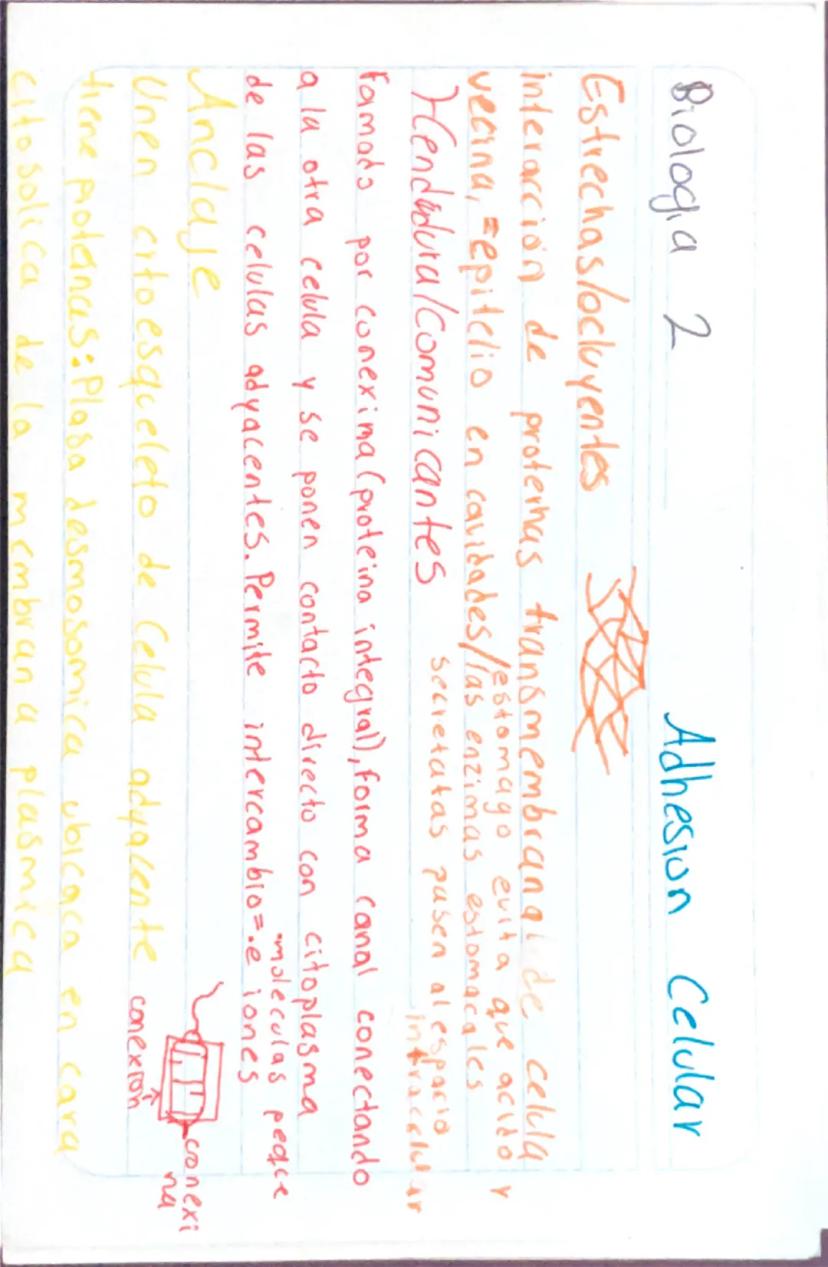 Biologia 2
Adhesion Celular
Estrechas/ocluyentes
interaccion de proteinas transmembranal de celula
vecina, =epitelio en cavidades/estomago evita que acido y
las enzimas estomacales
secretatas pasen al espacio
intracelular
Hendadura/Comunicantes
Famado por conexima (proteina integral), forma canal conectando
a la otra celula y se ponen contacto directo con citoplasma
de las celulas adyacentes. Permite intercambio=.e iones
.moleculas peque
Anclaje
Unen citoesqueleto de Celula adyacente
conexion
conexi
na
tiene proteinas: Plasa desmosomica ubicaca en cara
citosolica de la membrana plasmica